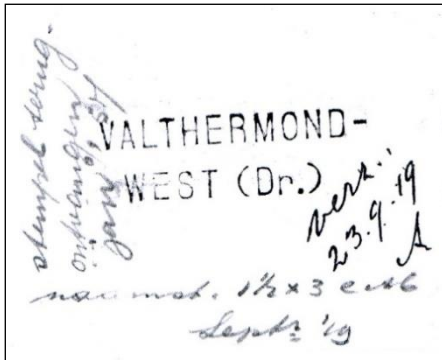 stempel terug
ontvangen
jan '3
VALTHERMOND-
WEST (Dr.)
verz.
23.9.19
naamst. 1½ x 3 cM
Septr '19